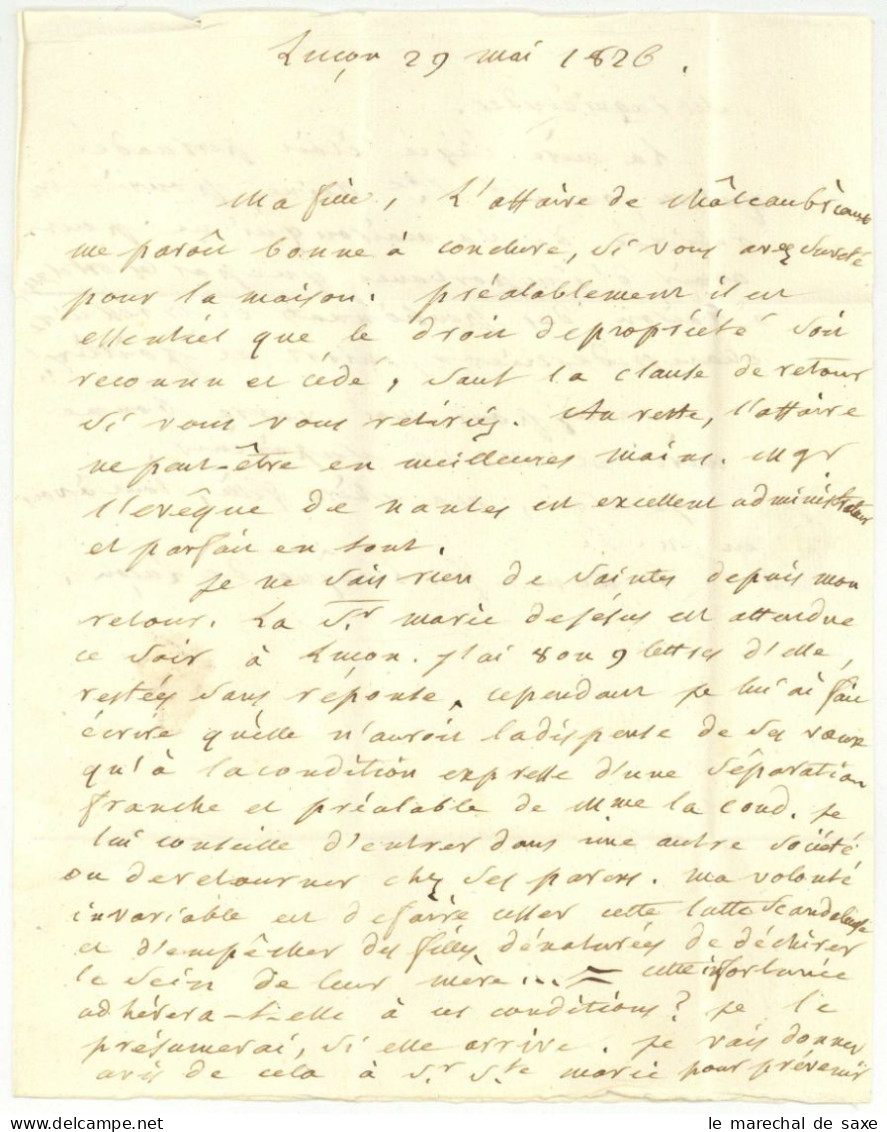 Luçon 29 mai 1826.
Ma fille, L'affaire de Châteaubriant
me paroît bonne à conclure, si vous avez sureté
pour la maison. préalablement il est
essentiel que le droit de propriété soit
reconnu et cédé, sauf la clause de retour
si vous vous retiriés. Au reste, l'affaire
ne peut-être en meilleures mains. Mgr
l'evêque de nantes est excellent administrateur
et parfait en tout.
je ne sais rien de Saintes depuis mon
retour. La Sr marie de jésus est attendue
ce soir à Luçon. j'ai 8 ou 9 lettres d'elle,
restées sans réponse, cependant je lui ai fait
écrire qu'elle n'auroit la dispense de ses voeux
qu'à la condition expresse d'une séparation
franche et préalable de Mme la Cond. je
lui conseille d'entrer dans une autre société
ou de retourner chez ses parens. ma volonté
invariable est de faire cesser cette lutte scandaleuse
et d'empêcher des filles dénaturées de déchirer
le sein de leur mère... = cette infortunée
adhérera-t-elle à ces conditions? je le
présumerai, si elle arrive. je vais donner
avis de cela à Sr Ste marie pour prévenir
le marechal de saxe